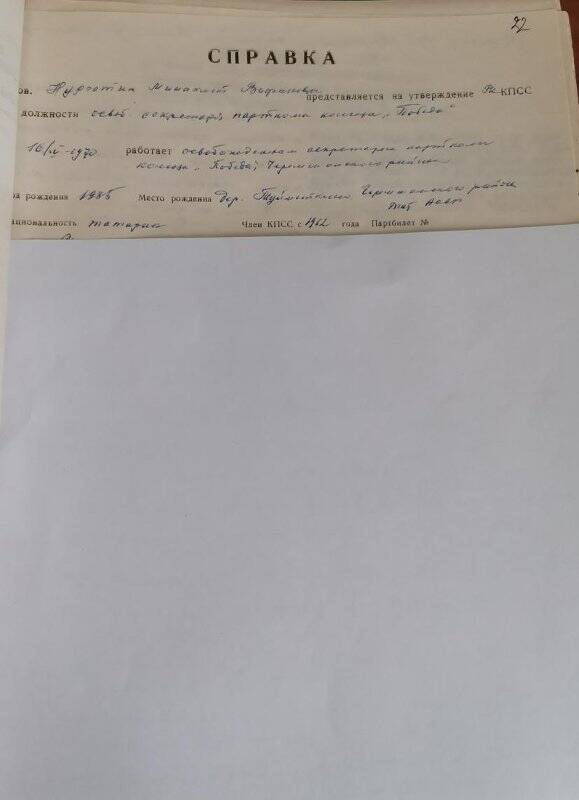 22
СПРАВКА
ов. представляется на утверждение РК КПСС
должности освоб. секретарь парткома колхоза „Победа"
работает освобожденным секретарем парткома
колхоза „Победа", Черемшанского района
од рождения 1935 Место рождения дер. Черемшанского района
Тат АССР
ациональность татарин Член КПСС с 1962 года Партбилет №